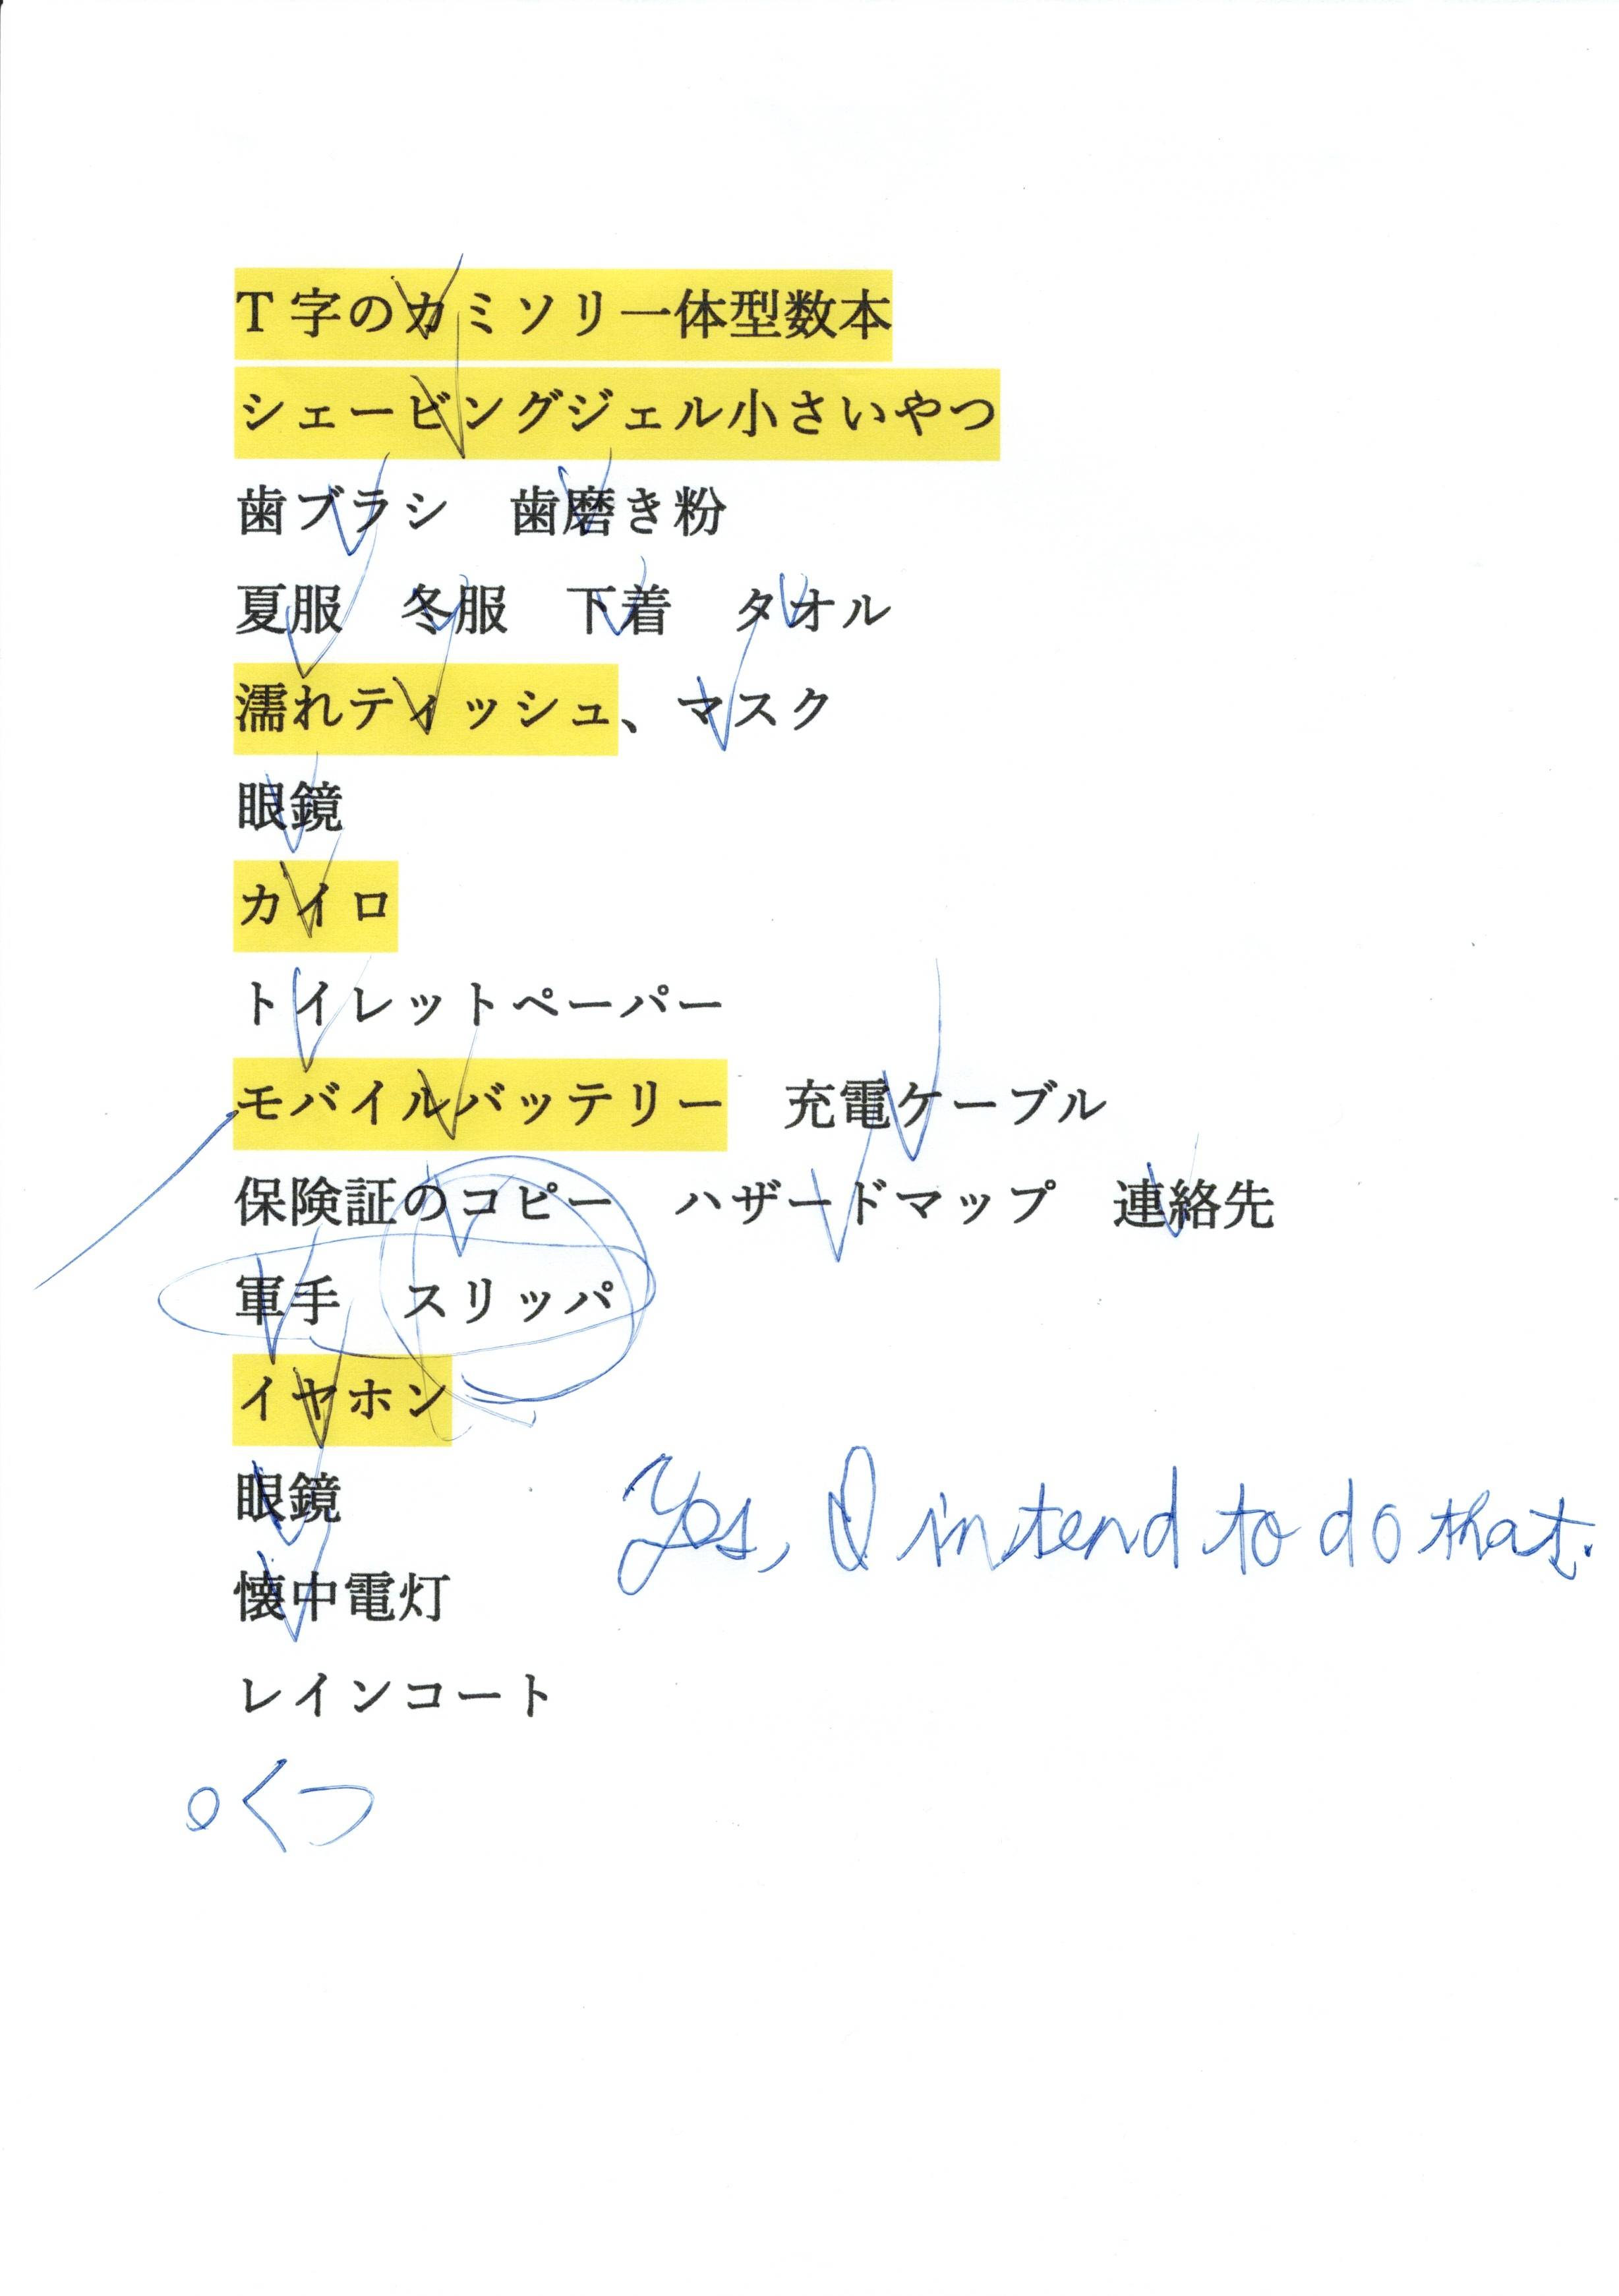 T字のカミソリ一体型数本
シェービングジェル小さいやつ
歯ブラシ　歯磨き粉
夏服　冬服　下着　タオル
濡れティッシュ、マスク
眼鏡
カイロ
トイレットペーパー
モバイルバッテリー　充電ケーブル
保険証のコピー　ハザードマップ　連絡先
軍手　スリッパ
イヤホン
眼鏡
Yes, I intend to do that.
懐中電灯
レインコート
○くつ